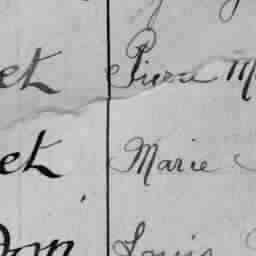 et Pierre M
et Marie
Louis